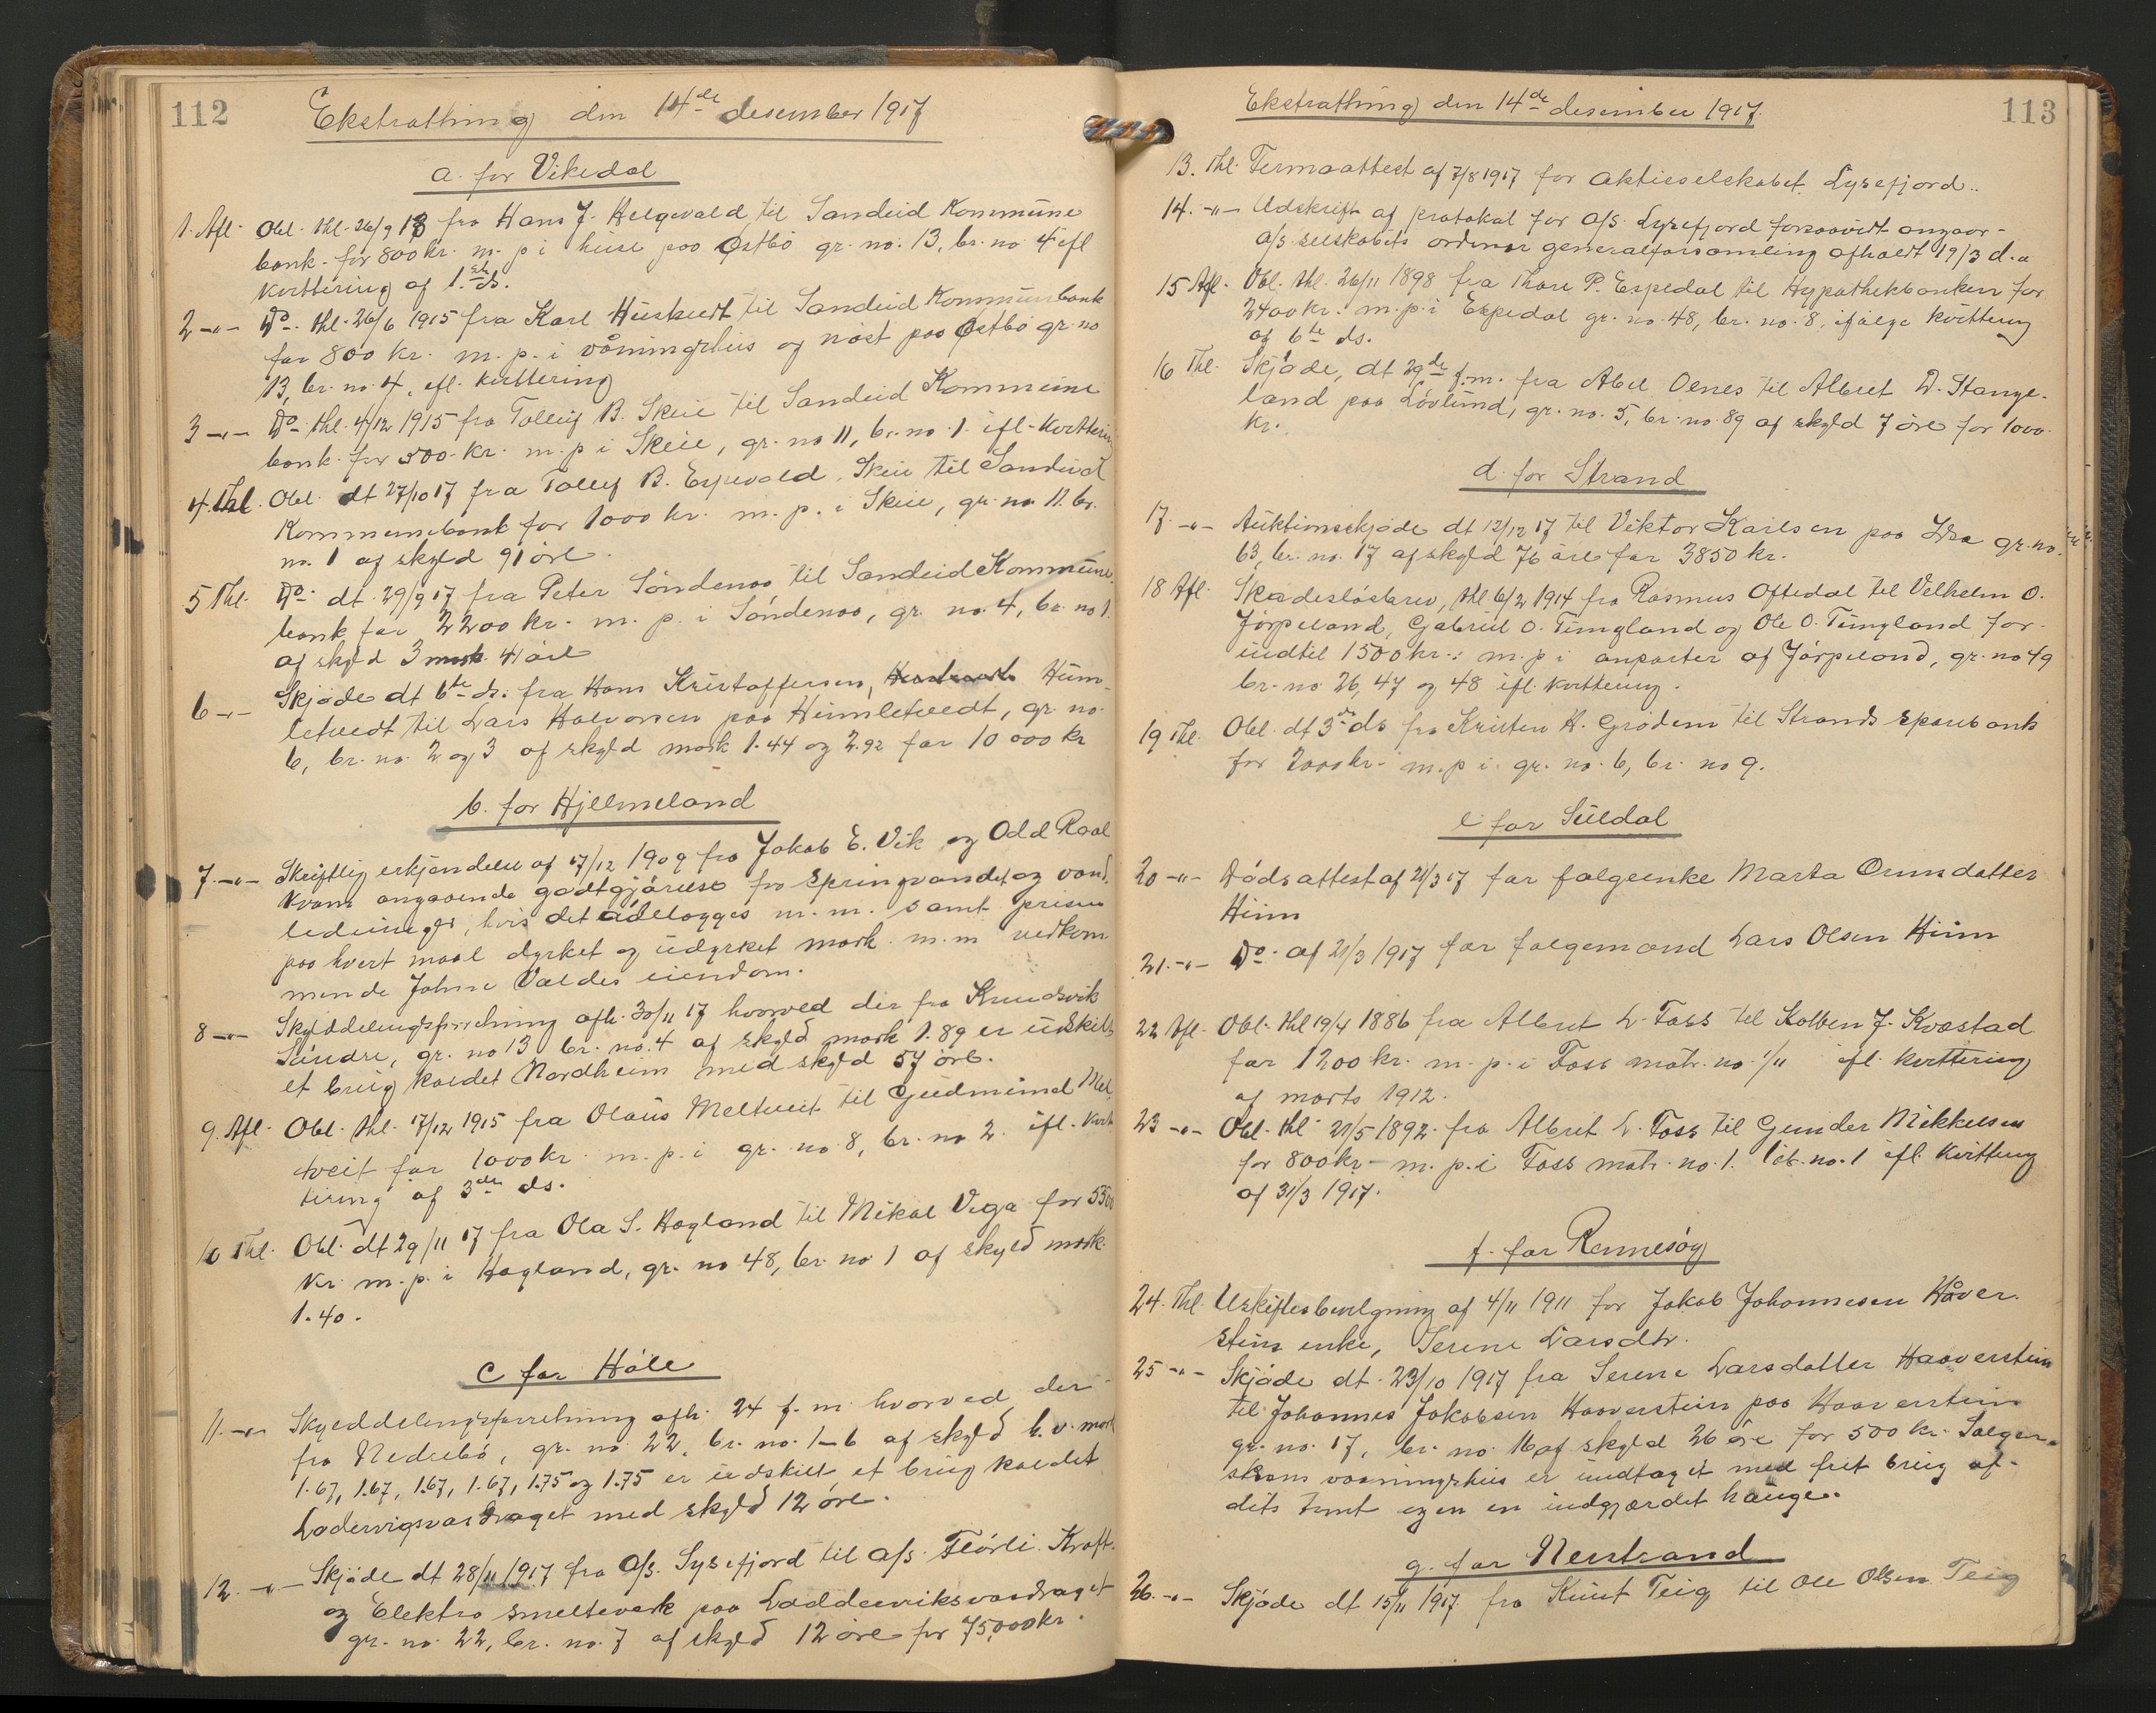 112
Ekstrathing den 14de desember 1917
a. for Vikedal
1. Afl. Obl. thl. 26/9 13 fra Hans J. Helgevald til Sandeid Kommune
bank for 800 kr. m. p. i huse paa Østbö gr. no. 13, br. no 4 ifl
kvittering af 1ste ds.
2 -"- Do. thl. 26/6 1915 fra Karl Huskedt til Sandeid Kommunebank
for 800 kr. m. p. i våningshus og nöst paa Østbö gr. no
13, br. no. 4, ifl. kvittering
3 -"- Do. thl. 4/12 1915 fra Tolleif B. Skeie til Sandeid Kommune
bank for 500 kr. m. p i Skeie, gr. no 11, br. no. 1. ifl. kvittering
4. Thl. Obl. dt 27/10 17 fra Tollef B. Espevold, Skeie til Sandeid
Kommunebank for 1000 kr. m. p. i Skeie, gr. no 11. br.
no. 1 af skyld 91 öre.
5 Thl. Do. dt. 29/9 17 fra Peter Söndenaa til Sandeid Kommune
bank for 2200 kr. m. p. i Söndenaa, gr. no. 4, br. no 1.
af skyld 3 mark 41 öre
6 -"- Skjöde dt 6te ds. fra Hans Kristoffersen, Hum-
letvedt til Lars Halvorsen paa Humletvedt, gr. no.
6, br. no. 2 og 3 af skyld mark 1.44 og 2.92 for 10 000 kr
b. for Hjelmeland
7. -"- Skriftlig erkjendelse af 17/12 1909 fra Jakob E. Vik og Odd Raol
Kvam angaaende godtgjörelse fra springvandet og vand
ledninger, hvis det ödelægges m. m. samt prisen
paa hvert maal dyrket og udyrket mark m. m vedkom
mende Johne Valdes eiendom.
8 -"- Skylddelingsforretning afh. 30/11 17 hvorved der fra Knudsvik
Söndre, gr. no 13 br. no. 4 af skyld mark 1.89 er udskilt
et brug kaldet Nordheim med skyld 57 öre.
9. Afl. Obl. thl. 17/12 1915 fra Olaus Meltveit til Gudmund Mel
tveit for 1000 kr. m. p. i gr. no 8, br. no 2. ifl. kvit
tering af 3die ds.
10 Thl. Obl. dt 29/11 17 fra Ola S. Hagland til Mikal Vega for 5500
kr. m. p. i Hagland, gr. no 48, br. no 1 af skyld mark
1.40.
c for Höle
11. -"- Skylddelingsforretning afh. 24 f. m. hvorved der
fra Nedrebö, gr. no 22, br. no. 1-6 af skyld h. v. mark
1.67, 1.67, 1.67, 1.67, 1.75 og 1.75 er udskilt et brug kaldet
Ladervigsvasdraget med skyld 12 öre.
12. -"- Skjöde dt 28/11 1917 fra A/S. Lysefjord til A/S. Flörli Kraft-
og Elektro smelteverk paa Ladderviksvasdraget
gr. no. 22, br. no. 7 af skyld 12 öre for 75,000 kr.
113
Ekstrathing den 14de desember 1917.
13. Thl. Firmaattest af 7/8 1917 for Aktieselskabet Lysefjord.
14. -"- Udskrift af protokol for A/S. Lysefjord forsaavidt angaar
A/S selskabets ordinær generalforsamling afholdt 19/3 d. a
15 Afl. Obl. thl. 26/11 1898 fra Thore P. Espedal til Hypothekbanken for
2400 kr. m. p. i Espedal gr. no. 48, br. no. 8, ifölge kvittering
af 6te ds.
16 Thl. Skjöde, dt 29de f. m. fra Abel Oenes til Albret D. Stange-
land paa Lövlund, gr. no. 5, br. no 89 af skyld 7 öre for 1000
kr.
d. for Strand
17. -"- Auktionsskjöde dt 12/12 17 til Viktor Karlsen paa Idse gr. no.
63, br. no. 17 af skyld 76 öre for 3850 kr.
18 Afl. Skadeslösbrev, thl 6/2 1914 fra Rasmus Oftedal til Velhelm O.
Jörpeland, Gabriel O. Tungland og Ole O. Tungland for
indtil 1500 kr. m. p i anparter af Jörpeland, gr. no 49
br. no 26, 47 og 48 ifl. kvittering.
19 Thl. Obl. dt 3de ds fra Kristen H. Grödem til Strands sparebank
for 2000 kr. m. p i gr. no. 6, br. no 9.
e for Suldal
20 -"- Dödsattest af 21/3 17 for folgeenke Marta Ormsdatter
Hiim
21. -"- Do. af 21/3 1917 for folgemand Lars Olsen Hiim
22 Afl. Obl. thl 19/4 1886 fra Albret L. Foss til Kolben J. Kvæstad
for 1200 kr. m. p. i Foss matr. no. 1/11 ifl. kvittering
af marts 1912.
23 -"- Obl. thl 21/5 1892. fra Albret L. Foss til Gunder Mikkelsen
for 800 kr. m. p. i Foss matr. no. 1. löb. no. 1 ifl. kvittering
af 31/3 1917.
f. for Rennesöy
24. Thl. Uskiftesbevilgning af 4/11 1911 for Jakob Johannesen Håver-
steins enke, Serene Larsdtr.
25 -"- Skjöde dt. 23/10 1917 fra Serene Larsdatter Haaverstein
til Johannes Jakobsen Haaverstein paa Haaverstein
gr. no. 17, br. no. 16 af skyld 26 öre for 500 kr. Sælger-
skens vaaningshus er undtaget med frit brug af
dets tomt og en indgjærdet hauge.
g. for Nerstrand
26. -"- Skjöde dt 15/11 1917. fra Knut Teig til Ole Olsen Teig